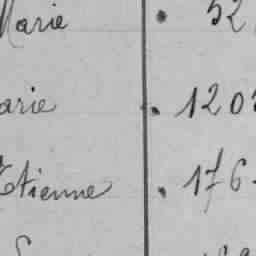 Marie . 52
arie . 120
Etienne . 176